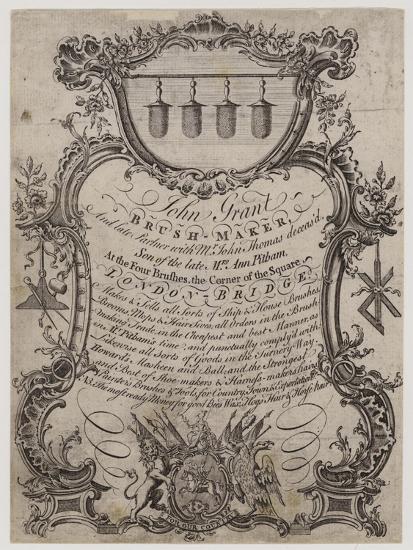 John Grant
BRUSH-MAKER,
And late Partner with Mr. John Thomas deceas'd,
Son of the late Mrs. Ann Pitham,
At the Four Brushes, the Corner of the Square
LONDON-BRIDGE.
Makes & Sells all Sorts of Ship & House Brushes,
Brooms, Mops & Hair Sives, all Orders in the Brush
making Trade in the Cheapest and best Manner, as
in Mrs. Pitham's time, and punctually comply'd with:
Likewise all Sorts of Goods in the Turnery Way
Howard's Kasheen and Ball, and the Strongest
and Best of Shoe-makers & Harness-makers hairs,
Painters Brushes & Tools for Country, Town, & Exportation.
NB. The most ready Money for good Bees Wax, Hogs Hair & Horse hair
FOR OUR COUNTRY